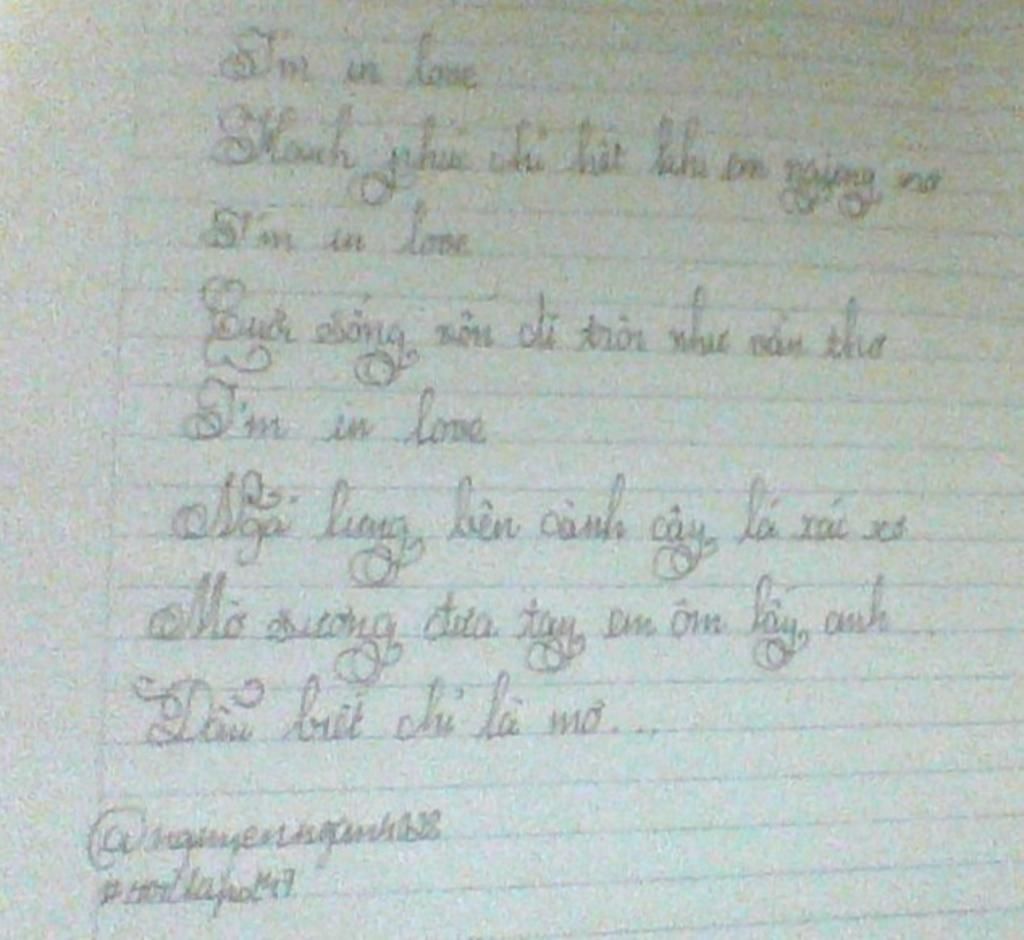 I'm in love
Hạnh phúc chỉ hết khi em ngừng mơ
I'm in love
Cuộc sống vốn dĩ trôi như vần thơ
I'm in love
Ngã lưng bên cành cây lá xác xơ
Mờ sương đưa tay em ôm lấy anh
Dẫu biết chỉ là mơ...